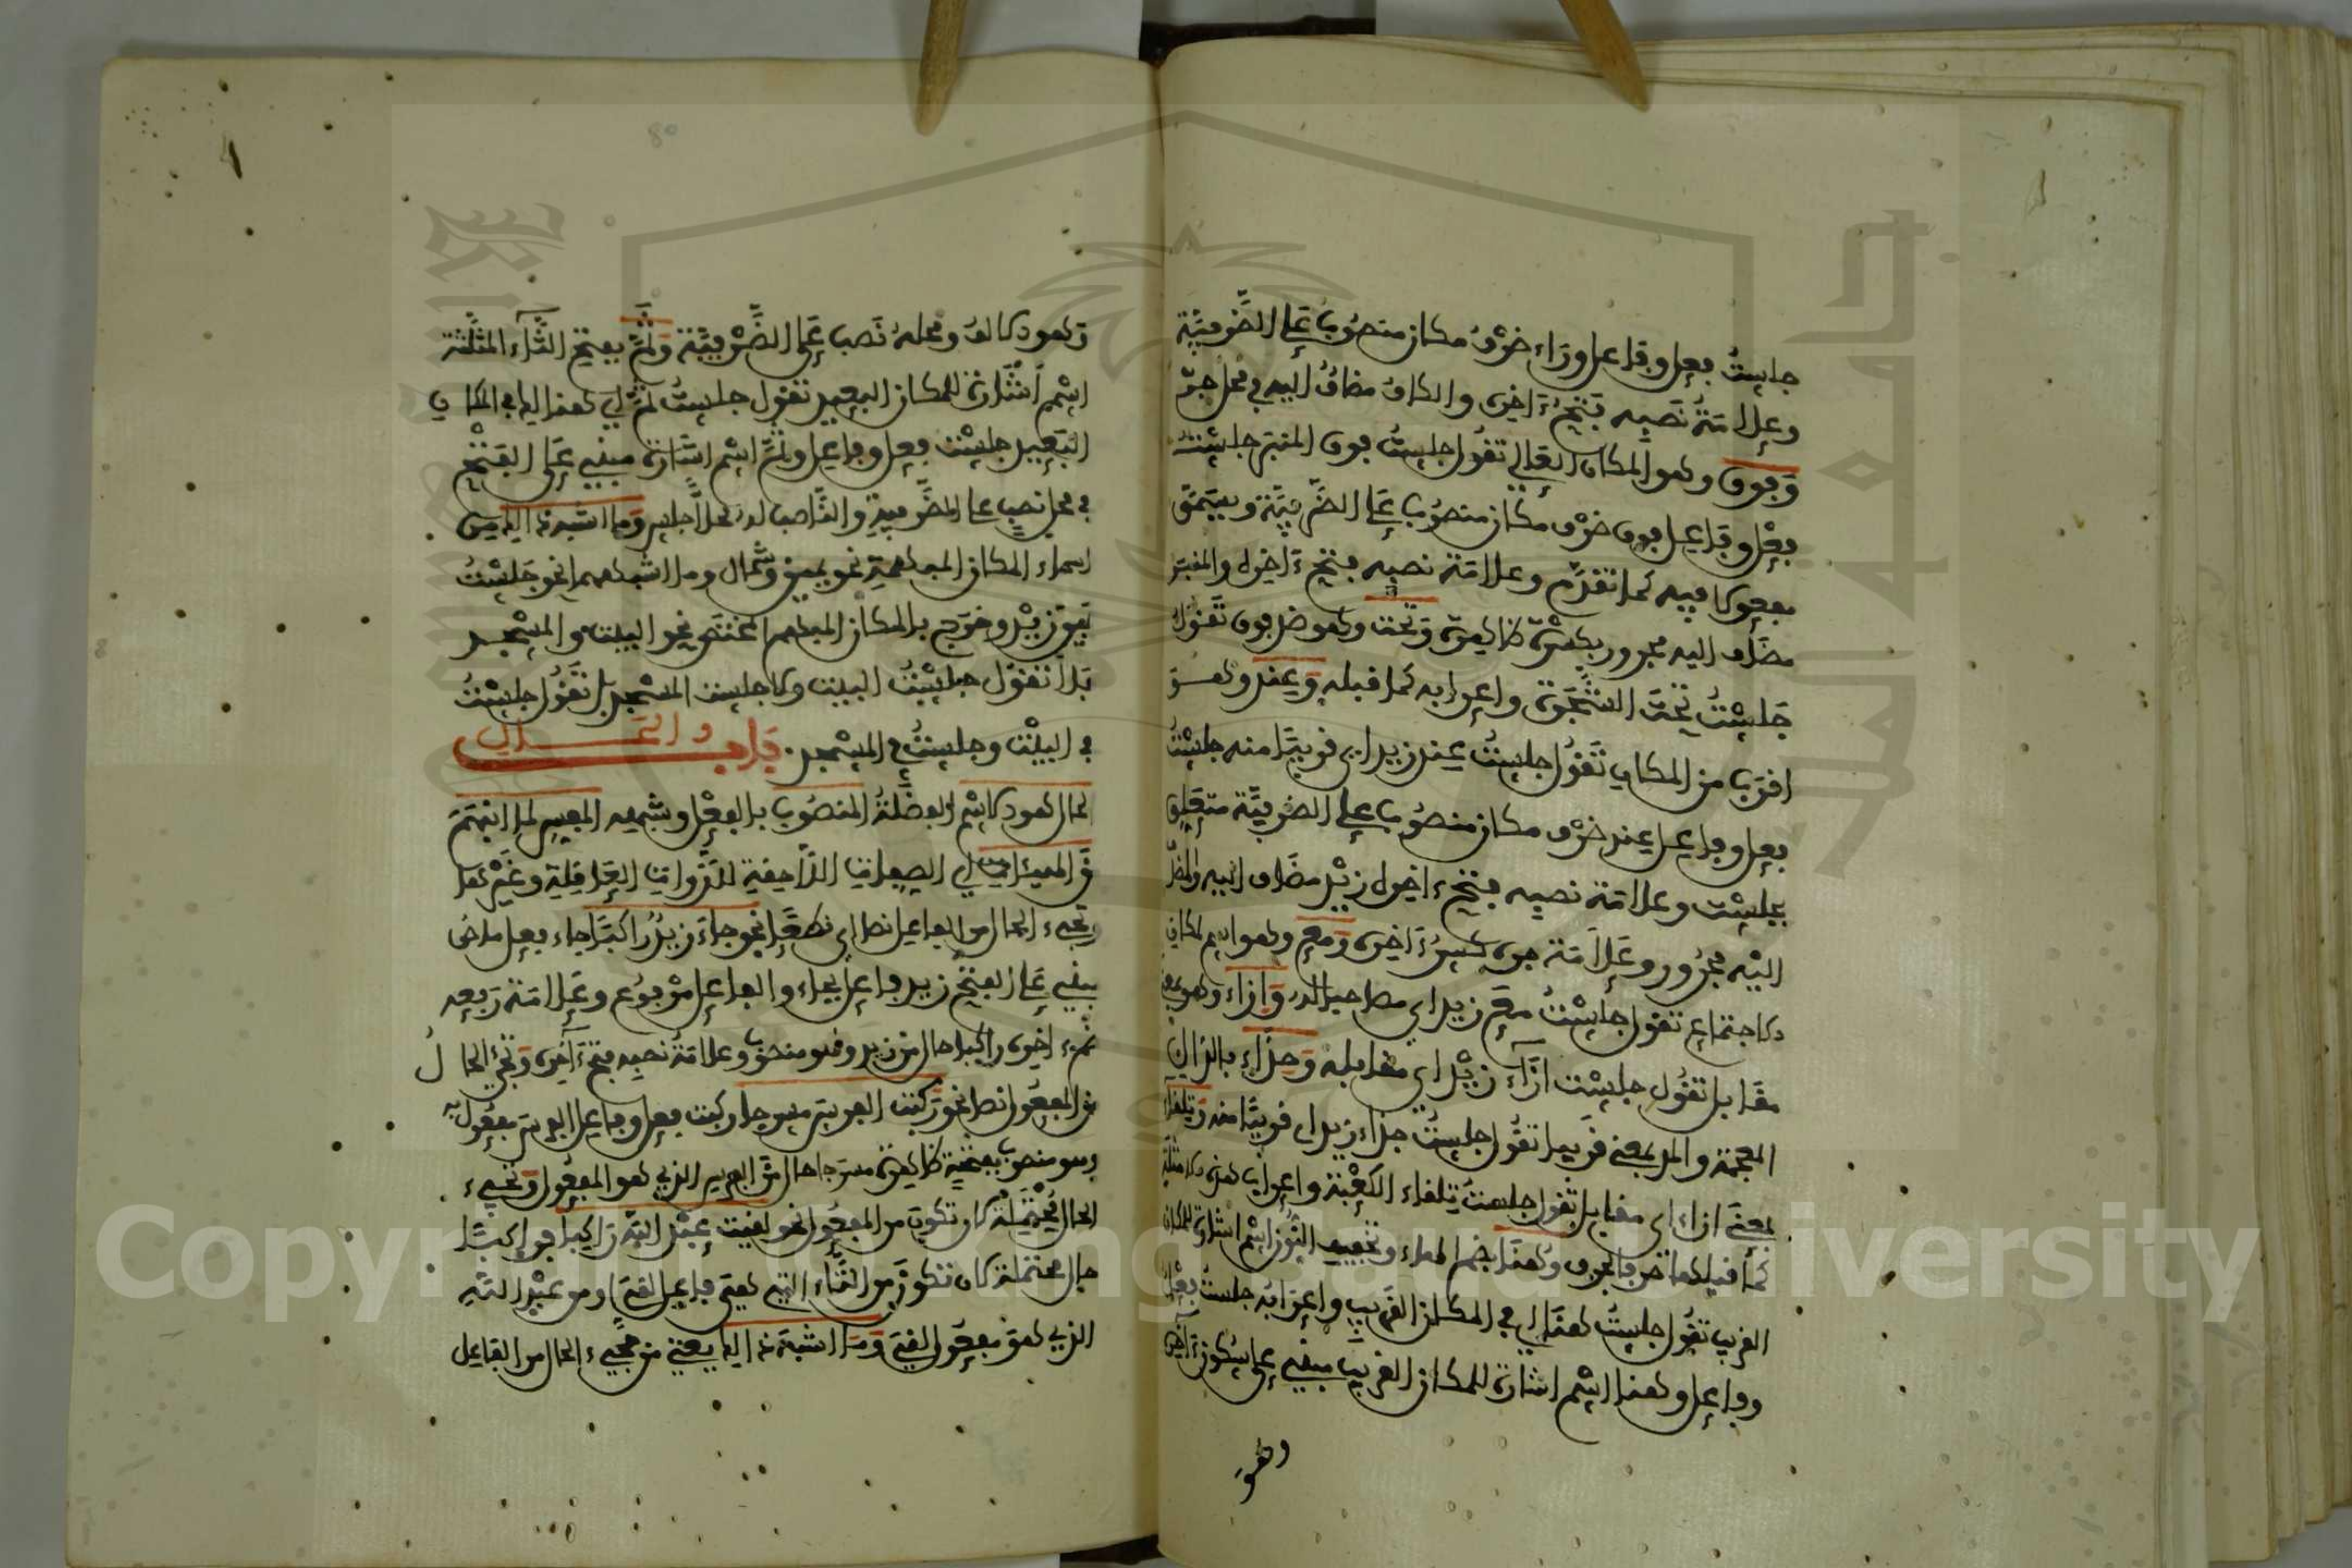 جلستُ فعل وفاعل وراء ظرْفُ مكان منصُوب عَلى الظَّرفيّة
وعلامَةُ نَصبه فَتْحُ ءَاخره والكاف مضافٌ اليه في محل جرّ
وَفوق وهو المكان العَالي تقُول جلستُ فوق المنبر جلسْتُ
فعْل وفَاعل فوق ظرْف مكان منصُوب عَلى الظَّرفيَّة ويسَمَّى
مفعولا فيه كما تقدَّم وعلامَة نصبه فتح ءَاخره والمنبر
مضَاف اليه مجرور بكسْرَة ظاهرَة وَتحْت وهو ضد فوق تَقولُ
جَلسْتُ تحْتَ الشَّجَرَة واعرابه كما قبله وَعِنْدَ وهو
اقرَب من المكان تَقُول جلستُ عند زيد اي قريبًا منه جلسْتُ
فعل وفاعل عند ظرْف مكان منصُوب على الظرفيَّة متعَلق
بجلسْت وعلامَة نصبه فتح ءاخره زيْد مضَاف اليه والمضَاف
اليْه مجْرُور وعَلاَمَة جره كسْرُ ءَاخره وَمَعَ وهو اسم لمكان
الاجتماع تقول جلسْتُ معَ زيد اي مصاحبا له وَإزاء وهو بمعنى
مقَابل تقُول جلسْت ازَآءَ زيْد اي مقابله وَحِذَاءَ بالذال
المعجمة والمد بمعنى قَريب تقُول جلستُ حذاء زيد اي قريبًا منه وَتلقاء
بمعنَى ازاء اي مقابل تقُول جلستُ تلقاء الكعْبَة واعراب هذه الامثلة
كما قبلها حرفا بحرف وهُنَا بضم الهاء وتخفيف النُّون اسْم اشارة للمكان
القريب تقُول جلستُ هنَا اي في المكان القريب واعرَابُه جلستُ فعْل
وفاعل وهنا اسْم اشارة للمكان القريب مبني على سكُون ءَاخره
وهوَ
وهو ذلك الف ومحله نَصب عَلى الظَّرْفيَّة وَثَمَّ بفتح الثَّآء المثلَّثة
اسْم اشَارَة للمكان البعيد تقول جلستُ ثَمَّ اي هنالك في المكان
البَعيد جلسْت فعل وفاعل وثَمَّ اسْم اشارة مبني عَلى الفَتْح
في محل نصب على الظَّرفية والنَّاصب لمحله جلس وَما اشبه ذلك من
اسماء المكان المبهمة نحو يمين وشمال وما اشبههما نحو جَلسْتُ
يَمينَ زيْد وخرَج بالمكان المبهم المختص نحو البيت والمسْجد
فلاَ تقول جلسْتُ البيت ولا جلست المسْجد بل تقُول جلسْتُ
في البيْت وجلستُ في المسْجد. بَاب الحَال
الحال هو الاسْم الفضلَةُ المنصُوب بالفعْل وشبهه المفسر لما انبَهَمَ
منَ الهيئات اي الصفات اللاَّحقة للذَّوات العَاقلة وغَيْرها
وَتجيء الحال من الفاعل نصا اي نطقًا نحو جاءَ زيدٌ رَاكبًا جاء فعل ماض
مبني عَلى الفتح زيد فاعل بجاء والفاعل مرْفوُع وعَلامَة رَفعه
ضم ءاخره راكبا حال من زيد وهو منصوب وعلامَةُ نصبه فتح ءَاخره وَتجيء الحالُ
من المفعُول نصا نحو ركبْت الفرسَ مسرجا ركبت فعل وفاعل الفرس مفعُول به
وهو منصوب بفتحة ظاهرة مسرَجا حال منَ الفرس الذي هو المفعُول وتجيء
الحال محْتَملَة لان تكون من المفعُول نحو لقيت عبْدَ اللّه رَاكبا فراكبًا
حال محتملة لان تكُونَ من التَّاء التي هي فاعل لقيَ ومن عبْد اللّه
الذي هو مفعُول لقيَ وَمَا اشْبَهَ ذلك يعني من مَجيء الحال من الفاعل
Copyright © King Saud University